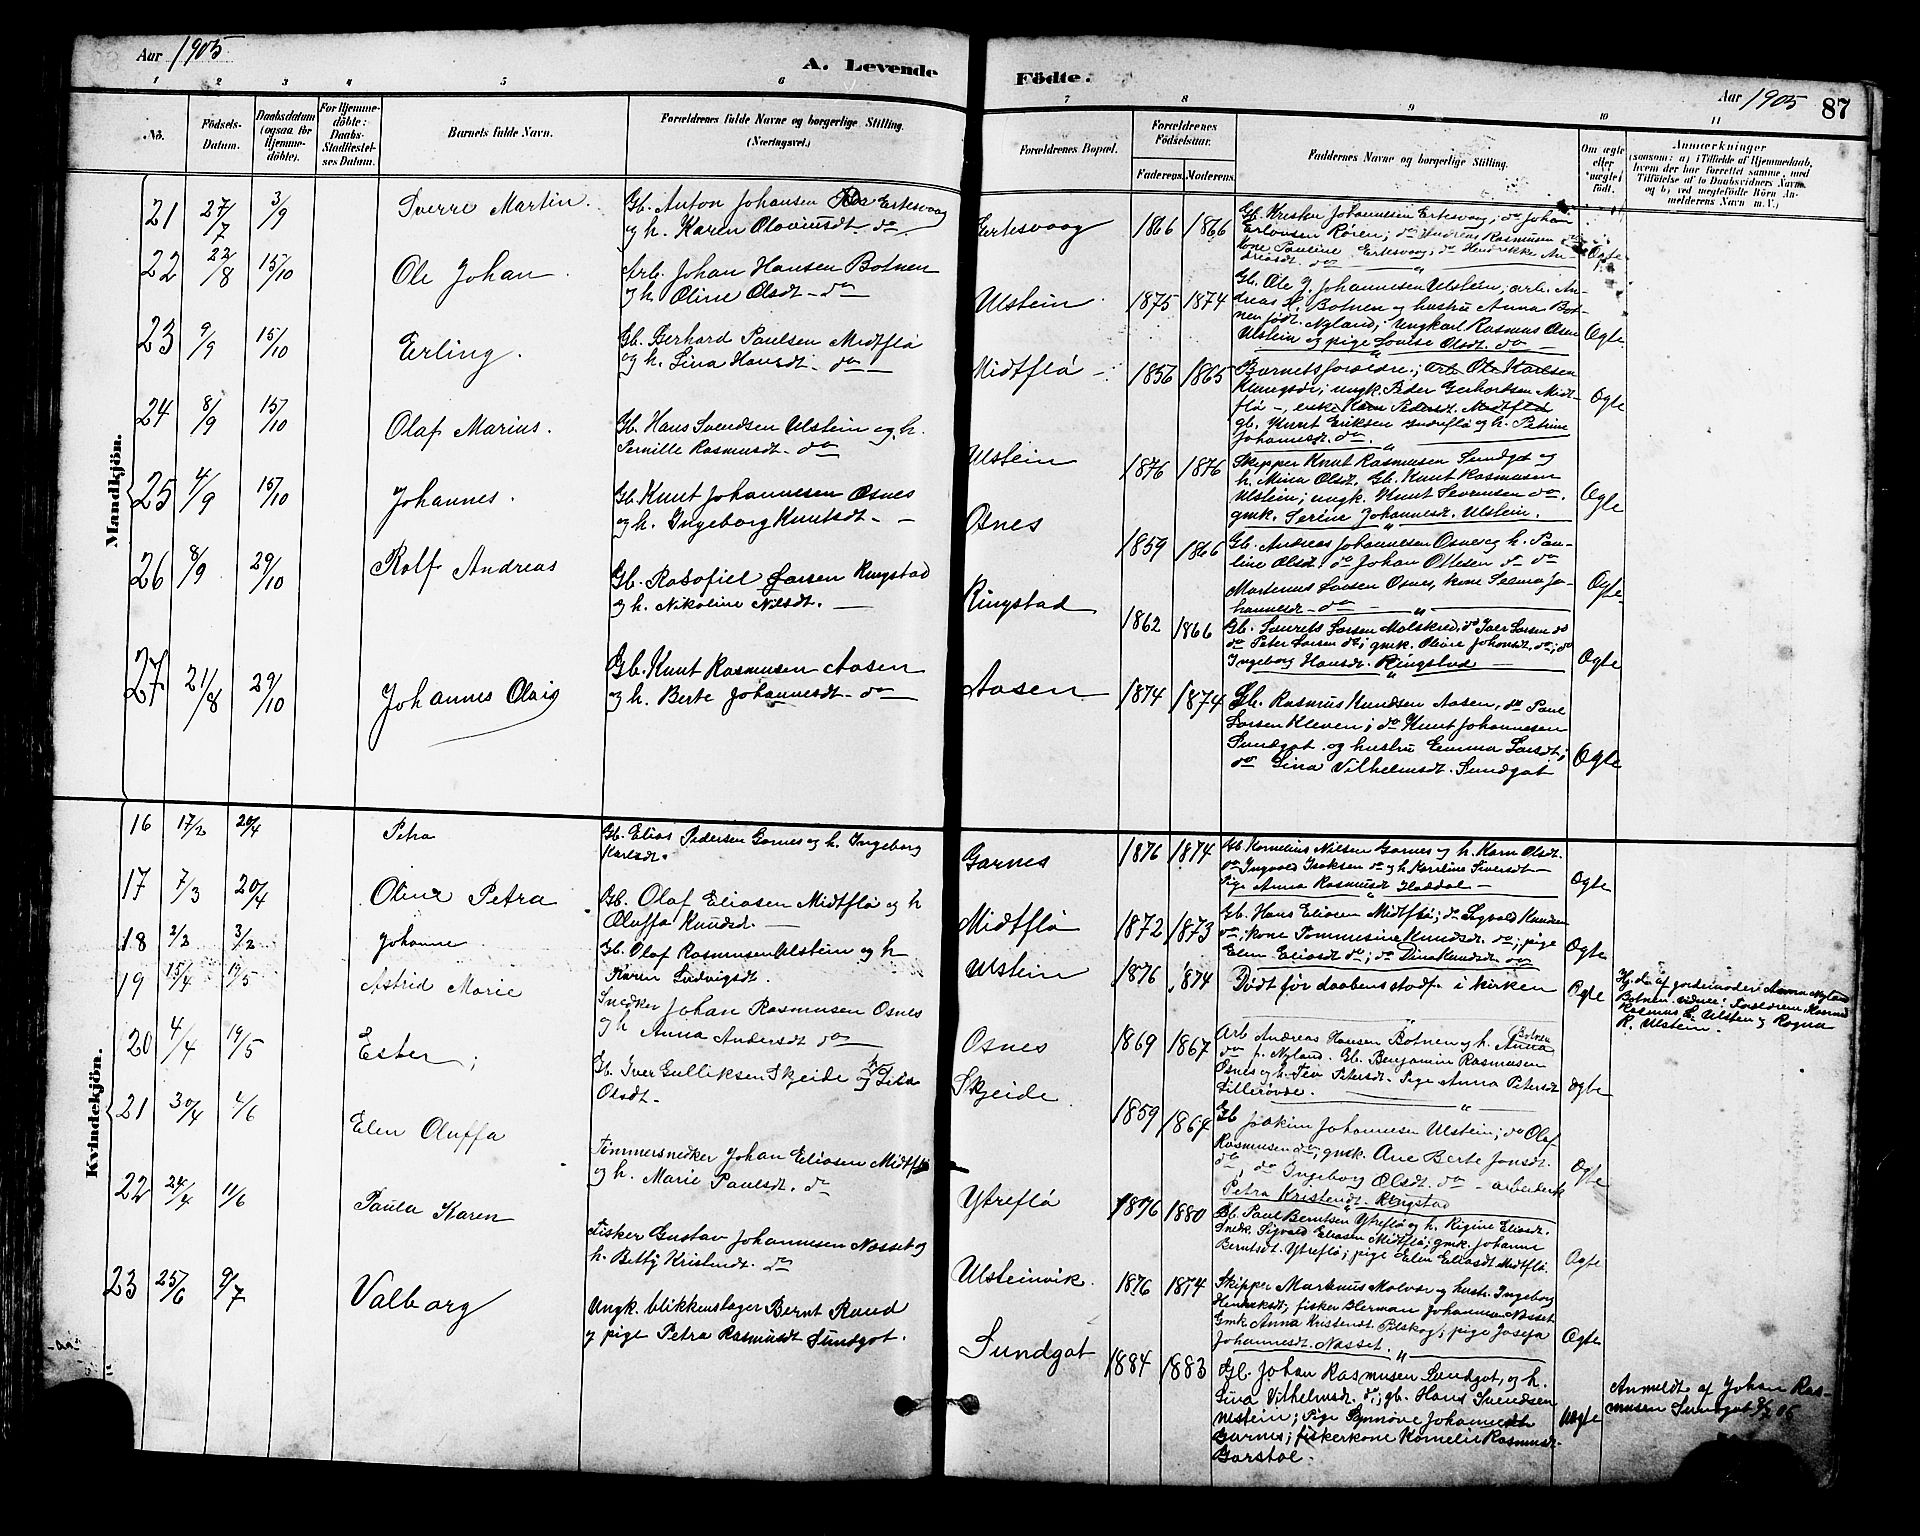 Aar 1905
A. Levende
Födte.
Aar 1905
87
1 2 3 4 5 6 7 8 9 10 11
No.
Födsels-
Datum.
Daabsdatum
(ogsaa for
Hjemme-
döbte).
For Hjemme-
döbte:
Daabs-
Stadfæstel-
ses Datum.
Barnets fulde Navn.
Forældrenes fulde Navne og borgerlige Stilling.
(Næringsvei.)
Forældrenes Bopæl.
Forældrenes
Födselsaar.
Faderens.
Moderens.
Faddernes Navne og borgerlige Stilling.
Om ægte
eller
uægte
födt.
Anmærkninger
(saasom: a) i Tilfælde af Hjemmedaab,
hvem der har forrettet samme, med
Tilföielse af to Daabsvidners Navn,
og b) ved uægtefödte Börn An-
melderens Navn m. V.)
Mandkjön.
21 27/7 3/9 Sverre Martin.
Gb. Anton Johansen Ertesvaag
og h. Karen Oloviusdt. do
Ertesvaag 1866 1866
Gb. Kristen Johannesen Ertesvaag; do Johan
Røren; do Andreas Rasmusen
kone Pauline Ertesvaag; do Hendrikke An-
dreasdt. do
Ægte
22 22/8 15/10 Ole Johan.
Arb. Johan Hansen Botnen
og h. Oline Olsdt - do
Ulstein 1875 1874
Gb. Ole J. Johannesen Ulstein; arb. An-
dreas H. Botnen og hustru Anna Bot-
nen født Nyland; Ungkarl Rasmus Olsen
Ulstein og pige Lovise Olsdt. do
Ægte
23 9/9 15/10 Erling.
Gb. Gerhard Paulsen Midtflø
og h. Lina Hansdt - do
Midtflø - 1856 1865
Barnets forældre; arb. Ole Karlsen
ungk. Peder Gerhardsen Midt-
flø -, enke Karn Pedersdt. Midtflø
gb. Knut Eriksen Yndreflø og h. Petrine
Johannesdt. do
Ægte
24 8/9 15/10 Olaf Marius.
Gb. Hans Svendsen Ulstein og h.
Pernille Rasmusdt. - do
Ulstein 1876 1876
Skipper Knut Rasmusen Sundgot og
h. Mina Olsdt. Gb. Knut Rasmusen
Ulstein; ungk. Knut Sevensen do.
gmk. Serine Johannesdt. Ulstein.
Ægte
25 4/9 15/10 Johannes.
Gb. Knut Johannesen Osnes
og h. Ingeborg Knutsdt. -
Osnes 1859 1866
Gb. Andreas Johannesen Osnes og h. Pau-
line Olsdt; do Johan Ottesen do
Martenus Larsen Osnes, kone Selma Jo-
hannesdt - do
Ægte
26 8/9 29/10 Rolf Andreas
Gb. Rasofiel Larsen Ringstad
og h. Nikoline Nilsdt. -
Ringstad 1862 1866
Gb. Laurits Larsen Molskred, do Iver Larsen do
do Peter Larsen do; gmk. Oline Johansdt. do; do
Ingeborg Hansdt. Ringstad
Ægte
27 21/8 29/10 Johannes Olaig
Gb. Knut Rasmusen Aasen
og h. Berte Johannesdt - do
Aasen 1874 1874
Gb. Rasmus Knudsen Aasen, do Paul
Larsen Kleven; do Knut Johannesen
Sundgot og hustru Emma Larsdt;
do Lina Vilhelmsdt. Sundgot
Ægte
Kvindekjön.
16 17/2 20/4 Petra
Gb. Elias Pedersen Garnes og h. Ingeborg
Karlsdt.
Garnes 1876 1874
Gb Kornelius Nilsen Garnes og h. Karn Olsdt.
do Ingvald Isaksen do og h. Karoline Siversdt -
Pige Anna Rasmusdt Haddal -
Ægte
17 7/3 20/4 Oline Petra
Gb. Olaf Eliasen Midtflø og h
Oluffa Knudsd. -
Midtflø 1872 1873
Gb. Hans Eliasen Midtflø; do Sigvald Knudsen
do; kone Tommesine Knudsdt. do; pige
Elen Eliasdt do; do Dina Knudsdt do
Ægte
18 2/2 3/2 Johanne
Gb. Olaf Rasmusen Ulstein og h
Karen Ludvigsdt.
Ulstein 1876 1874
Dødt før daabens stadf. i kirken
Ægte
Hj. da. af jordemoder Anna Nyland
Botnen. vidner: Forældrene Konrad
Rasmus L. Ulstein og Ragna
R. Ulstein.
19 15/4 19/5 Astrid Marie
Snedker Johan Rasmusen Osnes
og h Anna Andersdt do
Osnes 1869 1867
Arb Andreas Hansen Botnen og h. Anna Botnen
do f. Nyland. Gb. Benjamin Rasmusen
Osnes og h. Petersdt. Pige Anna Petersdt
Lillerøvde.
Ægte
20 4/4 19/5 Ester;
Gb. Iver Gulliksen Skjeide og h Lina
Olsdt.
Skjeide 1859 1864
Gb Joakim Johannesen Ulstein; do Olaf
Rasmusen do; gmk. Ane Berte Jonsdt.
do, do Ingeborg Olsdt. do - arbeiderk
Petra Kristendt. Ringstad
Ægte
21 30/4 4/6 Elen Oluffa
Tømmersnedker Johan Eliasen Midtflø
og h. Marie Paulsdt. do
Ytreflø 1876 1880
Gb. Paul Berntsen Ytreflø og h. Rigine Eliasdt.
Snedk. Sigvald Eliasen Midtflø; gmk. Johanne
Berntsdt. Ytreflø; pige Elen Eliasdt Midtflø.
Ægte
22 24/4 11/6 Paula Karen
Fisker Gustav Johannesen Nasset og
h. Betty Kristendt. do
Ulsteinvik. 1876 1874
Skipper Martinus Molvær og hust. Ingeborg
Henriksdt; fisker Herman Johannes. Nasset
Gmk Anna Kristendt. Pilskog; pige Josefa
Johannesdt. Nasset.
Ægte
23 25/6 9/7 Valborg
Ungk. blikkenslager Bernt Rand
og pige Petra Rasmusdt Sundgot.
Sundgot 1884 1883
Gb. Johan Rasmusen Sundgot, og h.
Lina Vilhelmsdt. do; gb. Hans Svendsen
Ulstein; Pige Synnøve Johannesdt
Garnes; fiskerkone Kornelie Rasmusdt.
Garshol.
Uægte
Anmeldt af Johan Ras-
musen Sundgot